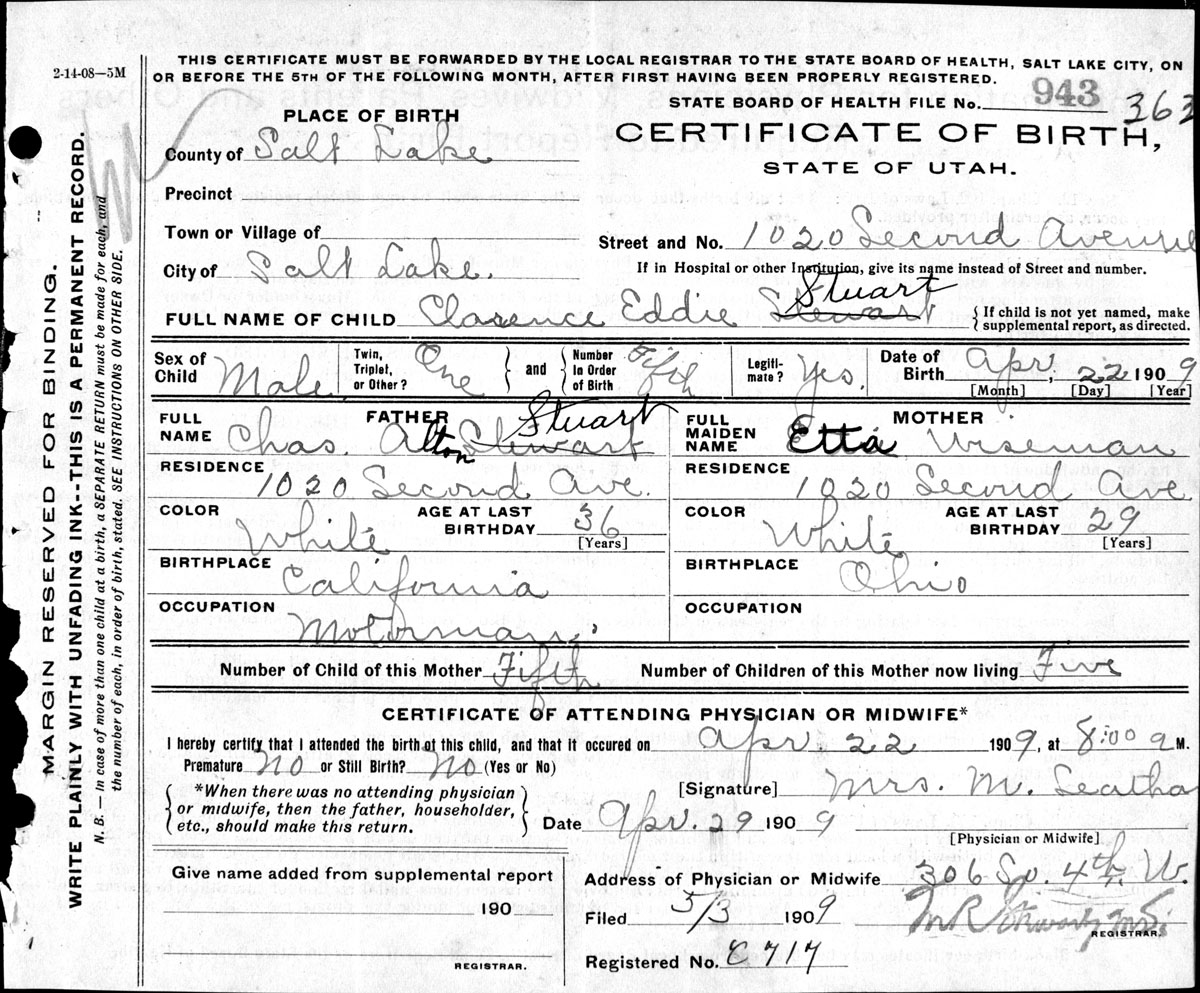 2-14-08—5M
THIS CERTIFICATE MUST BE FORWARDED BY THE LOCAL REGISTRAR TO THE STATE BOARD OF HEALTH, SALT LAKE CITY, ON
OR BEFORE THE 5TH OF THE FOLLOWING MONTH, AFTER FIRST HAVING BEEN PROPERLY REGISTERED.
STATE BOARD OF HEALTH FILE No. 943 363
CERTIFICATE OF BIRTH,
STATE OF UTAH.
PLACE OF BIRTH
County of Salt Lake
Precinct
Town or Village of
City of Salt Lake.
Street and No. 1020 Second Avenue
If in Hospital or other Institution, give its name instead of Street and number.
Stuart
FULL NAME OF CHILD Clarence Eddie Stewart
{ If child is not yet named, make
supplemental report, as directed.
Sex of Child Male
Twin, Triplet, or Other? One } and { Number In Order of Birth Fifth
Legiti-mate? Yes.
Date of Birth Apr. 22 1909
[Month] [Day] [Year]
FATHER
Stuart
FULL NAME Chas. Alton Stewart
RESIDENCE
1020 Second Ave.
COLOR White
AGE AT LAST BIRTHDAY 36
[Years]
BIRTHPLACE
California
OCCUPATION
Motorman
MOTHER
FULL MAIDEN NAME Etta Wiseman
RESIDENCE
1020 Second Ave
COLOR White
AGE AT LAST BIRTHDAY 29
[Years]
BIRTHPLACE
Ohio
OCCUPATION
Number of Child of this Mother Fifth Number of Children of this Mother now living Five
CERTIFICATE OF ATTENDING PHYSICIAN OR MIDWIFE*
I hereby certify that I attended the birth of this child, and that it occured on Apr. 22 1909, at 8:00 a M.
Premature No or Still Birth? No (Yes or No)
{ *When there was no attending physician
or midwife, then the father, householder,
etc., should make this return. }
[Signature] Mrs. M.
Date Apr. 29 1909
[Physician or Midwife]
Give name added from supplemental report
190
REGISTRAR.
Address of Physician or Midwife 306 So. 4th W.
Filed 5/3 1909
REGISTRAR.
Registered No. C 717
MARGIN RESERVED FOR BINDING.
WRITE PLAINLY WITH UNFADING INK--THIS IS A PERMANENT RECORD.
N. B.— In case of more than one child at a birth, a SEPARATE RETURN must be made for each, and
the number of each, in order of birth, stated. SEE INSTRUCTIONS ON OTHER SIDE.